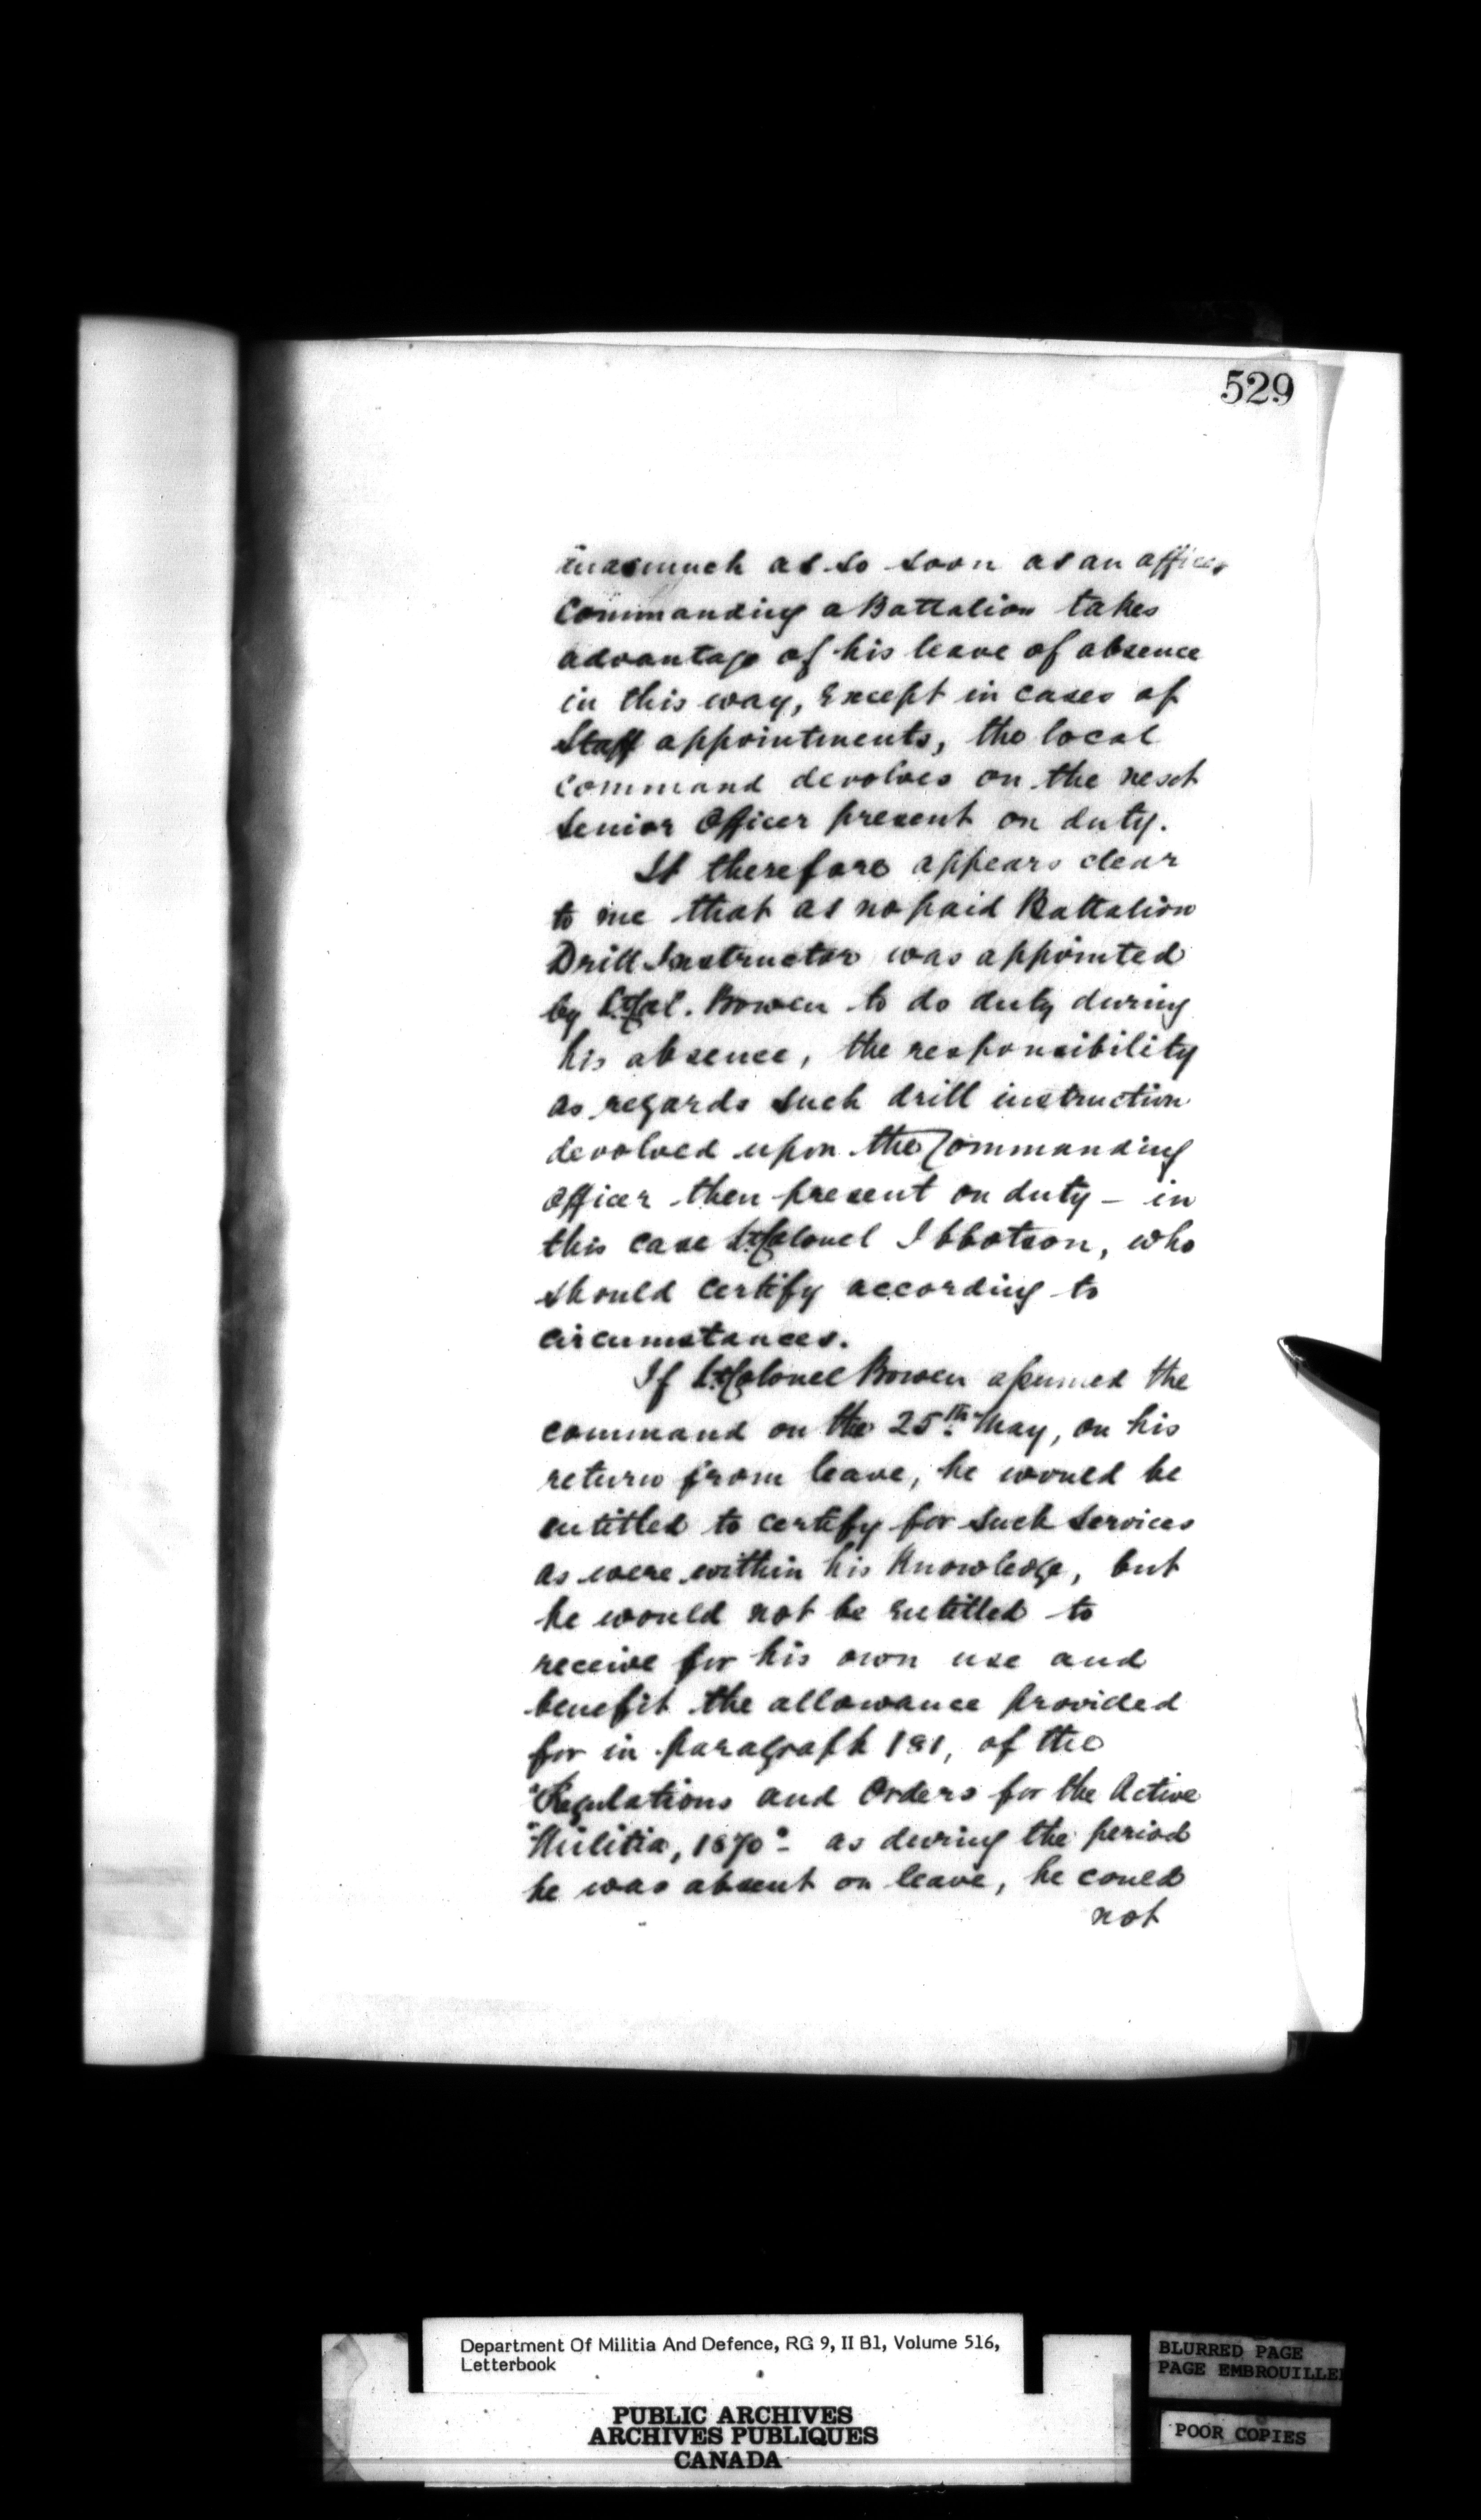 529
inasmuch as so soon as an officer
Commanding a Battalion takes
advantage of his leave of absence
in this way, Except in cases of
Staff appointments, the local
Command devolves on the next
Senior Officer present on duty.
It therefore appears clear
to me that as no paid Battalion
Drill Instructor was appointed
by Lt. Col. Bowen to do duty during
his absence, the responsibility
as regards such drill instruction
devolved upon the Commanding
Officer then present on duty – in
this case Lt. Colonel Ibbotson, who
should Certify according to
circumstances.
If Lt. Colonel Bowen assumed the
command on the 25th May, on his
return from leave, he would be
entitled to certify for such services
as were within his Knowledge, but
he would not be entitled to
receive for his own use and
benefit the allowance provided
for in paragraph 181, of the
"Regulations and Orders for the Active
"Militia, 1870" – as during the period
he was absent on leave, he could
not
Department Of Militia And Defence, RG 9, II B1, Volume 516,
Letterbook
PUBLIC ARCHIVES
ARCHIVES PUBLIQUES
CANADA
BLURRED PAGE
PAGE EMBROUILLEE
POOR COPIES